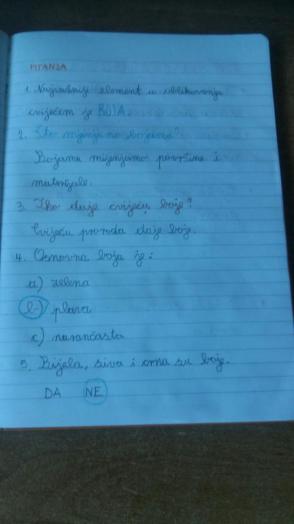 PITANJA
1. Najvažniji element u oblikovanju
cvijećem je BOJA.
2. Što mijenjamo bojama?
Bojama mijenjamo površine i
materijale.
3. Tko daje cvijeću boje?
Cvijeću priroda daje boje.
4. Osnovna boja je:
a) zelena
b) plava
c) narančasta
5. Bijela, siva i crna su boje.
DA NE